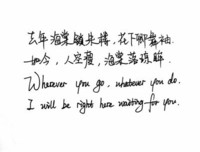 去年海棠映朱楼，花下卿舞袖.
如今，人空瘦，海棠落珠眸.
Wherever you go, whatever you do.
I will be right here waiting for you.